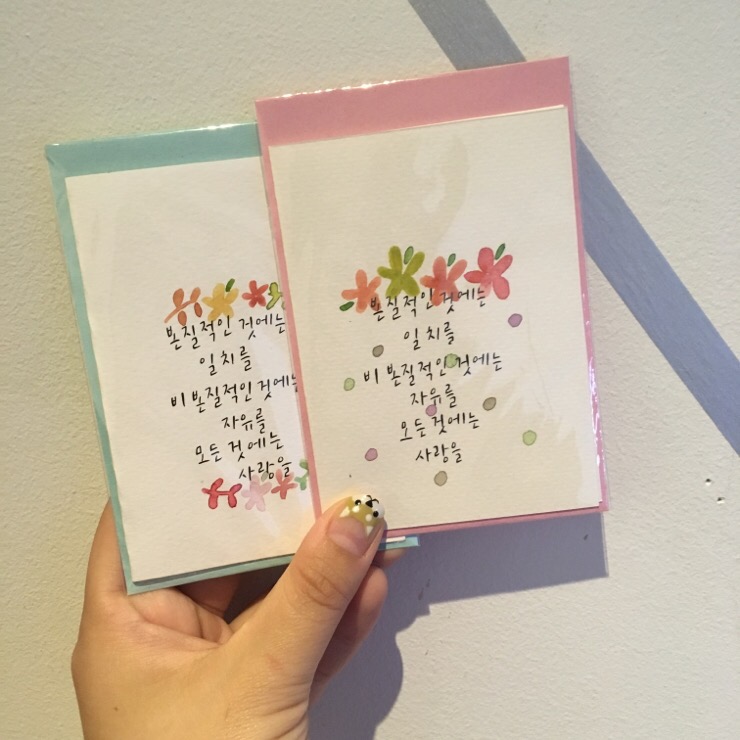 본질적인 것에는
일치를
비 본질적인 것에는
자유를
모든 것에는
사랑을
본질적인 것에는
일치를
비 본질적인 것에는
자유를
모든 것에는
사랑을